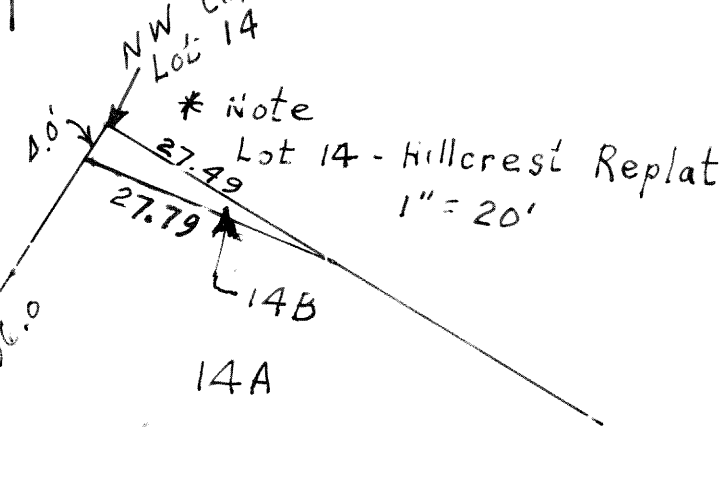 NW
Lot 14
* Note
Lot 14 - Hillcrest Replat
1" = 20'
27.49
27.79
14B
14A